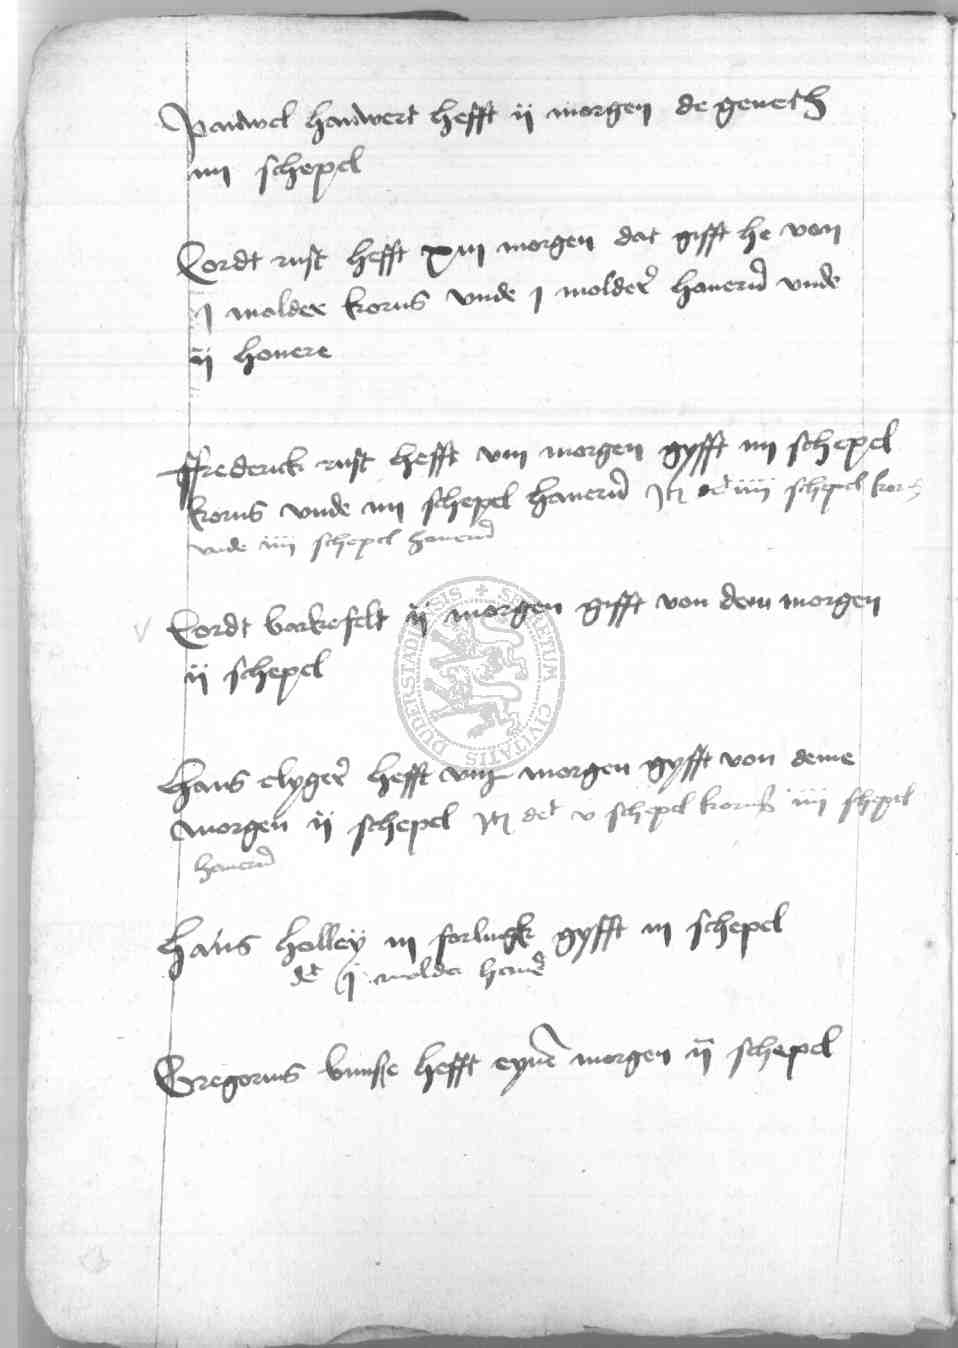 Pauwel hauwert hefft ij morgen de geueth
iiij schepel
Cordt rust hefft xiii morgen dat gifft he von
j molder korns vnde j molder hauern vnde
ij honere
Frederick rust hefft viii morgen gyfft iiij schepel
korns vnde iiij schepel hauern It det iiij schepel korns
vnde iiij schepel hauern
Cordt barkefelt ij morgen gifft von dem morgen
ij schepel
Hans elyger hefft morgen gyfft von deme
morgen ij schepel It det v schepel korns iiij schepel
hauern
Hans holley iij forlingk gyfft iij schepel
det j molder hauer
Gregorius hefft eyne morgen ij schepel
SECRETUM CIVITATIS DUDERSTADENSIS